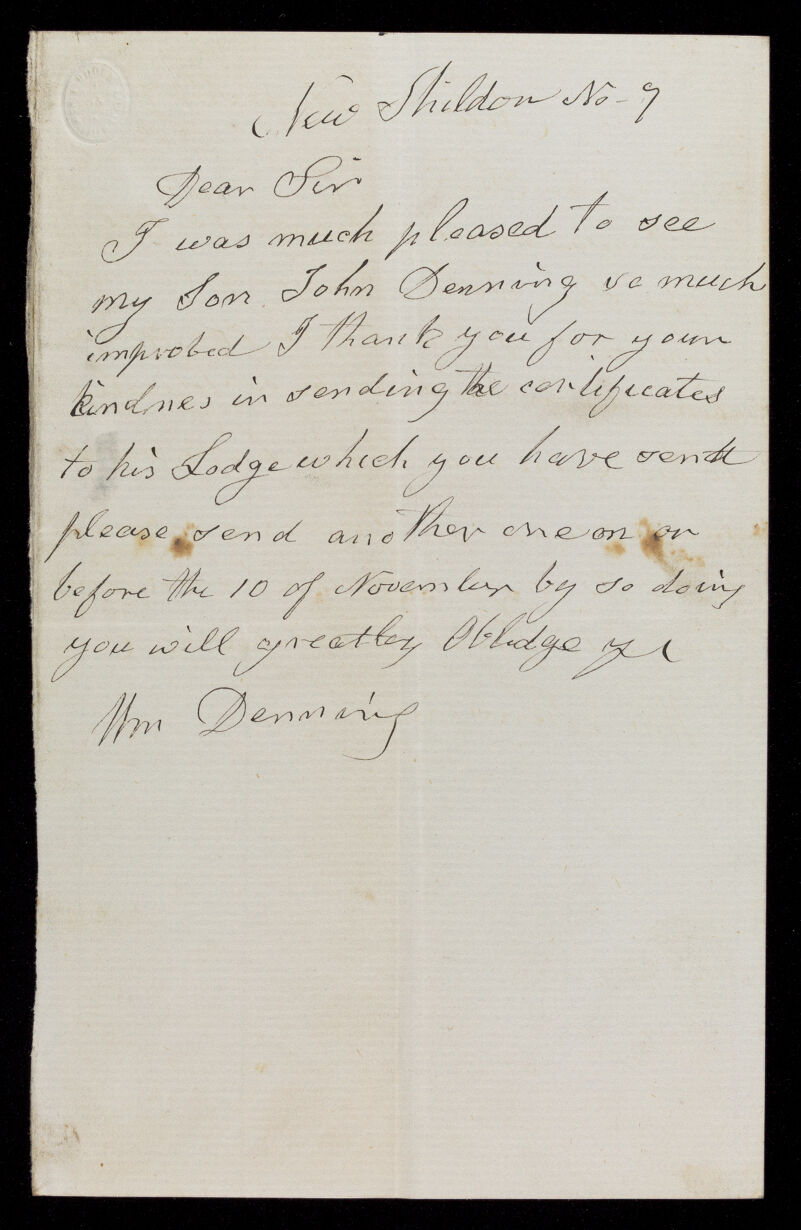 New Shildon No- 9
Dear Sir
I was much pleased to see
my Son John Denning so much
improved I thank you for your
kindness in sending the certificates
to his Lodge which you have send
please send another one on or
before the 10 of November by so doing
you will greatley Obledge yr
Wm Denning